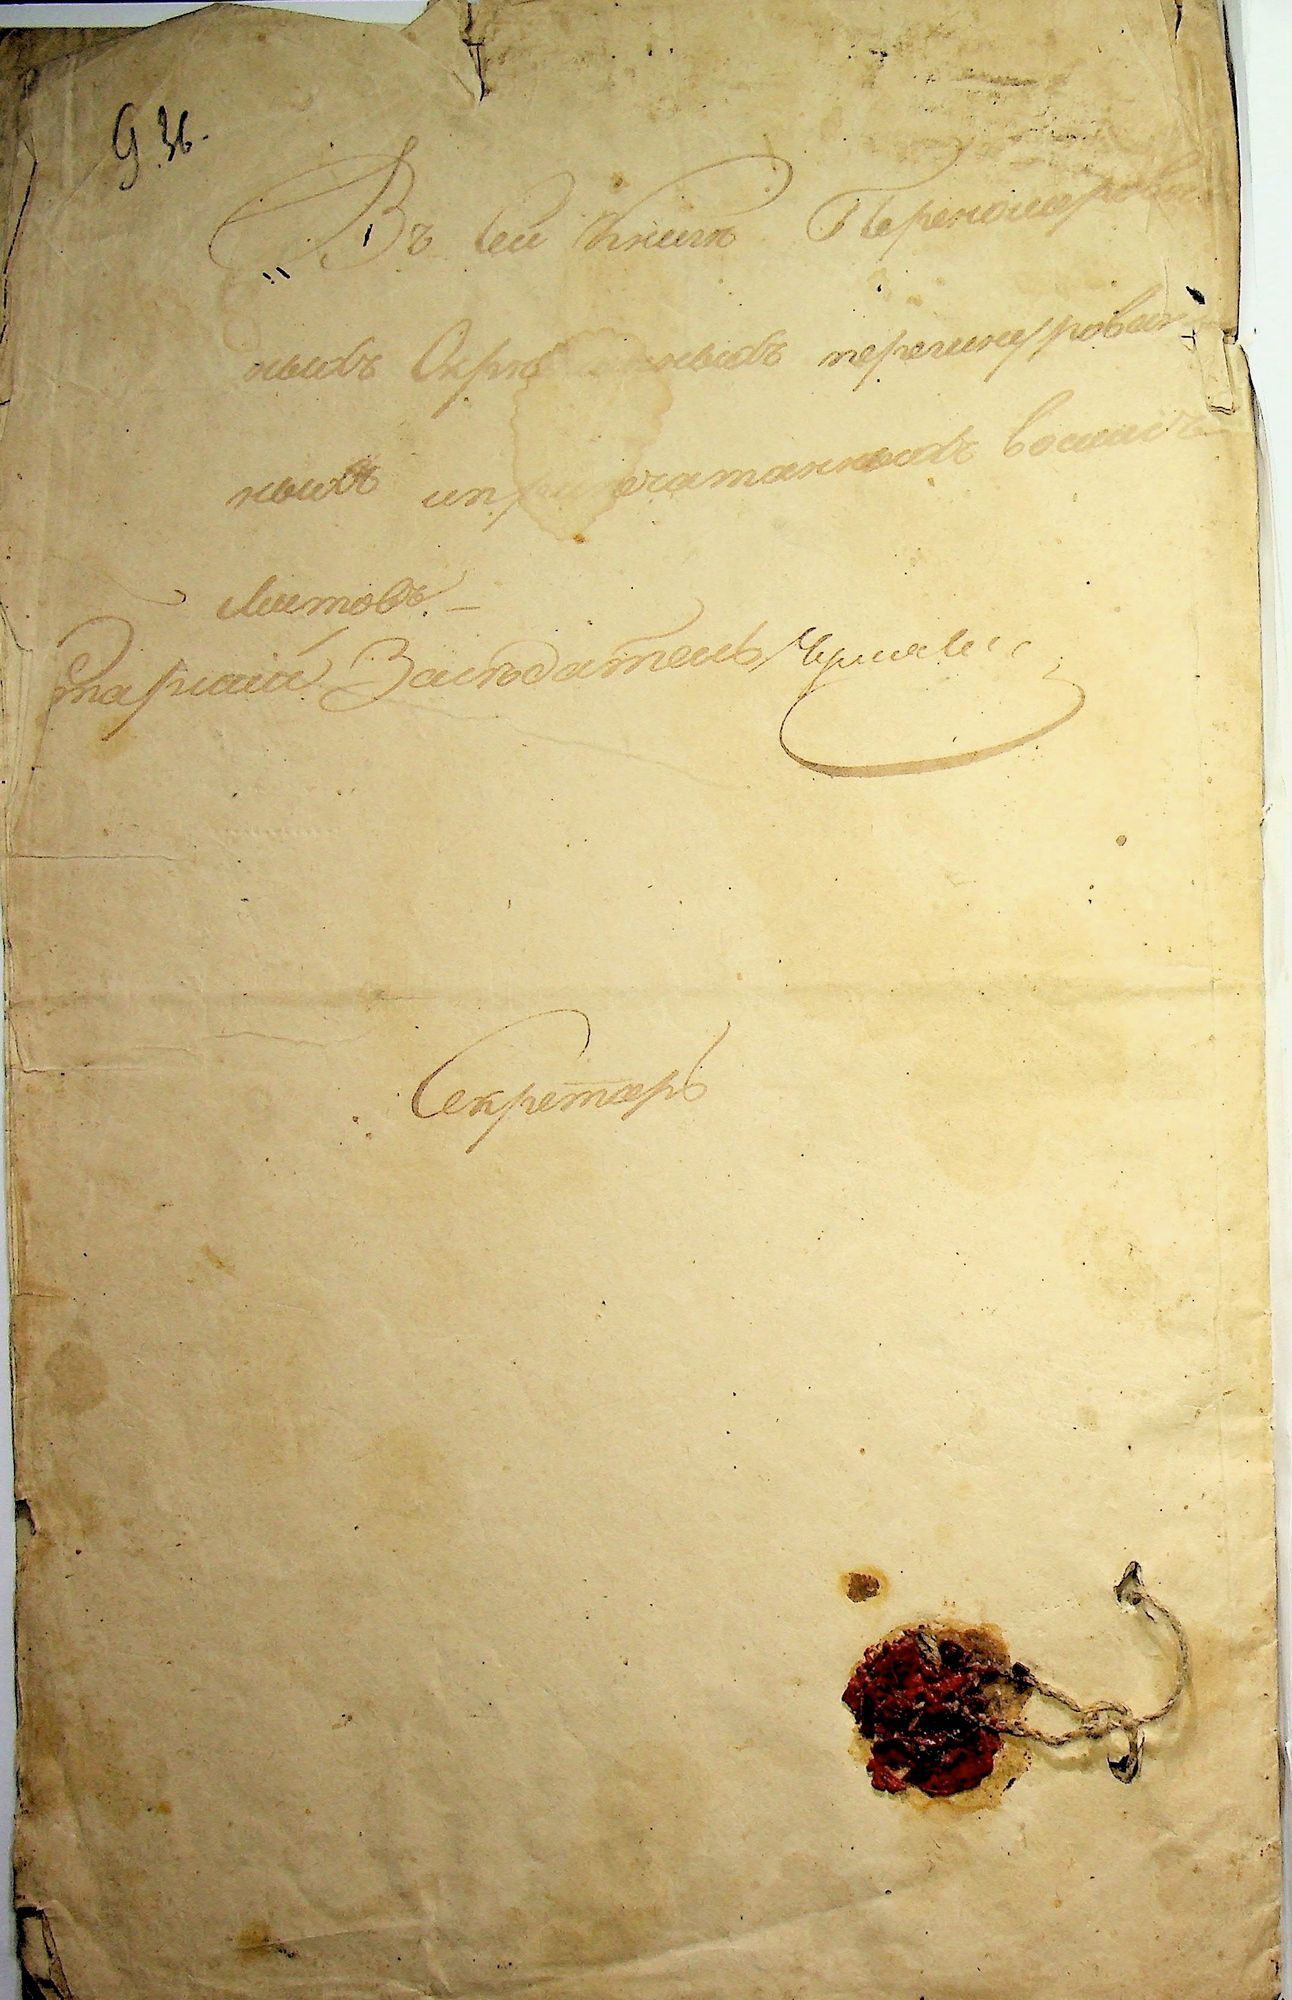 936.
Въ сей Книгѣ Перенумерован
ныхъ Скрѣпленныхъ перешнурован
ныхъ иприпечатанныхъ восемь
Листовъ. —
тарший Засѣдатель
Секретарь